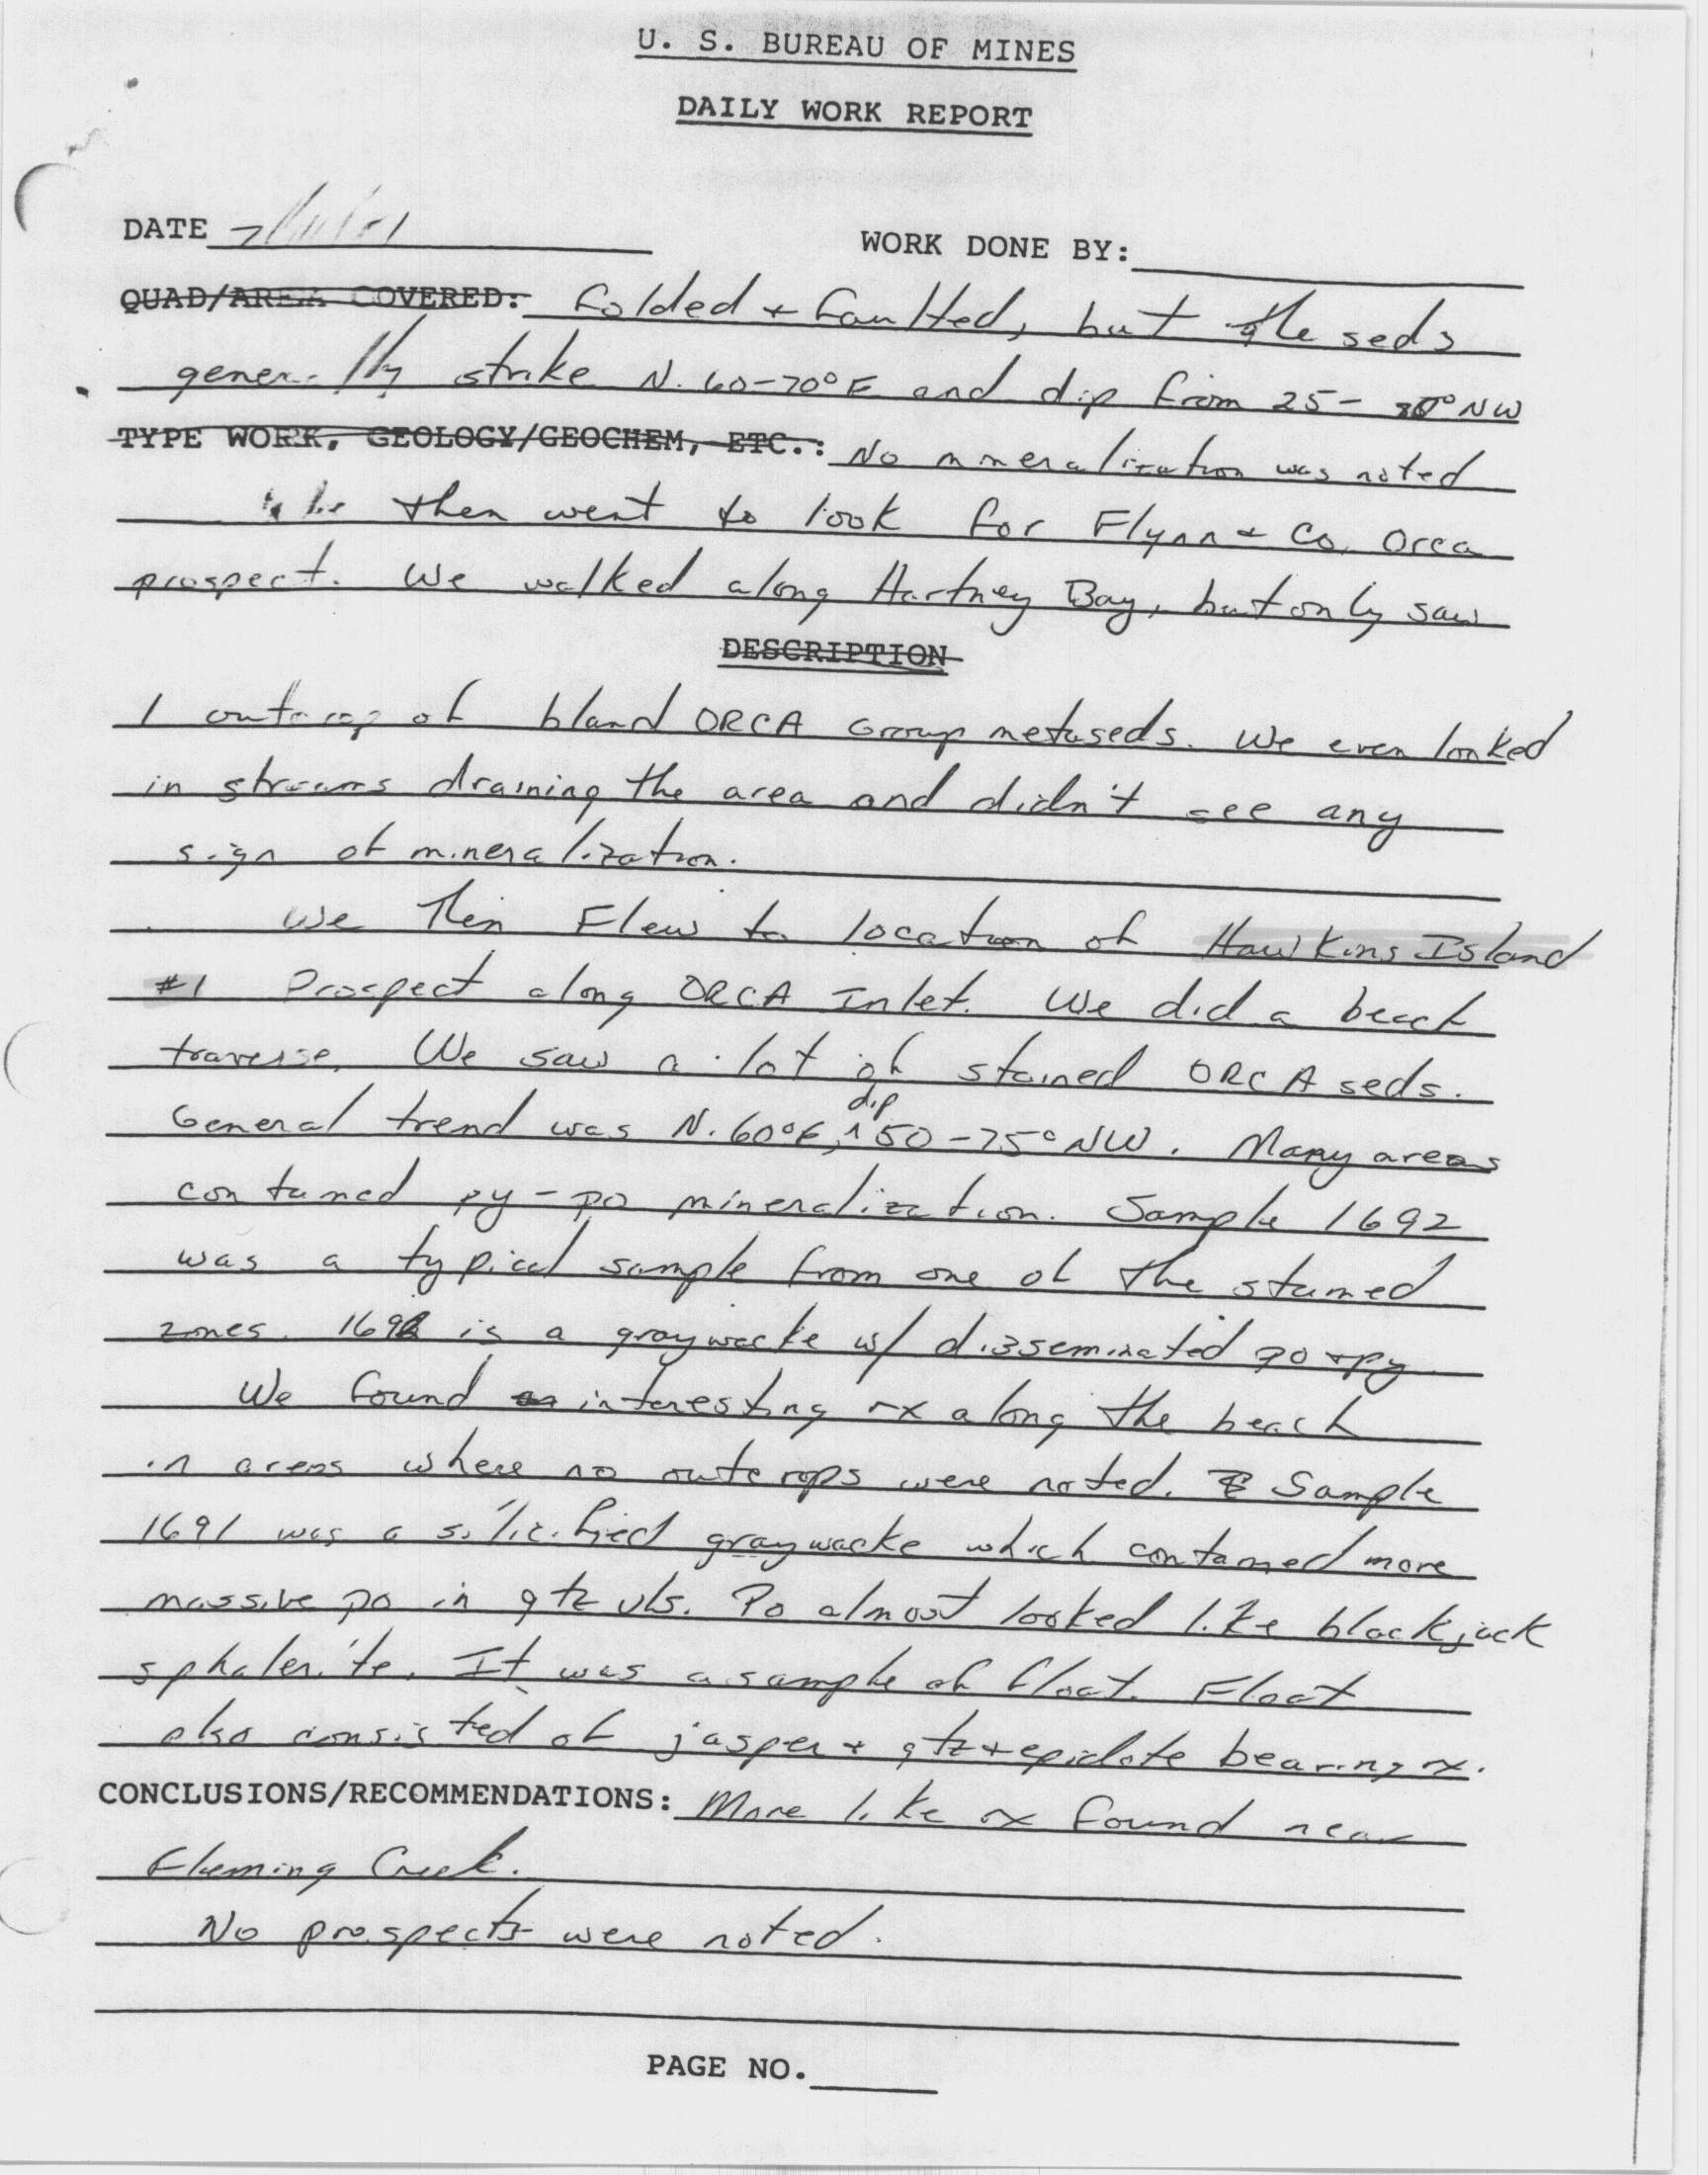 U. S. BUREAU OF MINES
DAILY WORK REPORT
DATE
WORK DONE BY:
QUAD/AREA COVERED: folded + faulted, but the seds
generally strike N. 60-70°E and dip from 25- °NW
TYPE WORK, GEOLOGY/GEOCHEM, ETC.: No mineralization was noted
We then went to look for Flynn + Co. Orca
prospect. We walked along Hartney Bay, but only saw
DESCRIPTION
1 outcrop of bland ORCA Group metaseds. We even looked
in streams draining the area and didn't see any
sign of mineralization.
We then Flew to location of Hawkins Island
#1 Prospect along ORCA Inlet. We did a beach
traverse. We saw a lot of stained ORCA seds.
General trend was N. 60°E, dip 50-75° NW. Many areas
contained py-po mineralization. Sample 1692
was a typical sample from one of the stained
zones. 1692 is a graywacke w/ disseminated po + py
We found interesting rx along the beach
in areas where no outcrops were noted. Sample
1691 was a silicified graywacke which contained more
massive po in qtz vls. Po almost looked like blackjack
sphalerite. It was a sample of float. Float
also consisted of jasper + qtz + epidote bearing rx.
CONCLUSIONS/RECOMMENDATIONS: More like rx found near
Fleming Creek.
No prospects were noted.
PAGE NO.